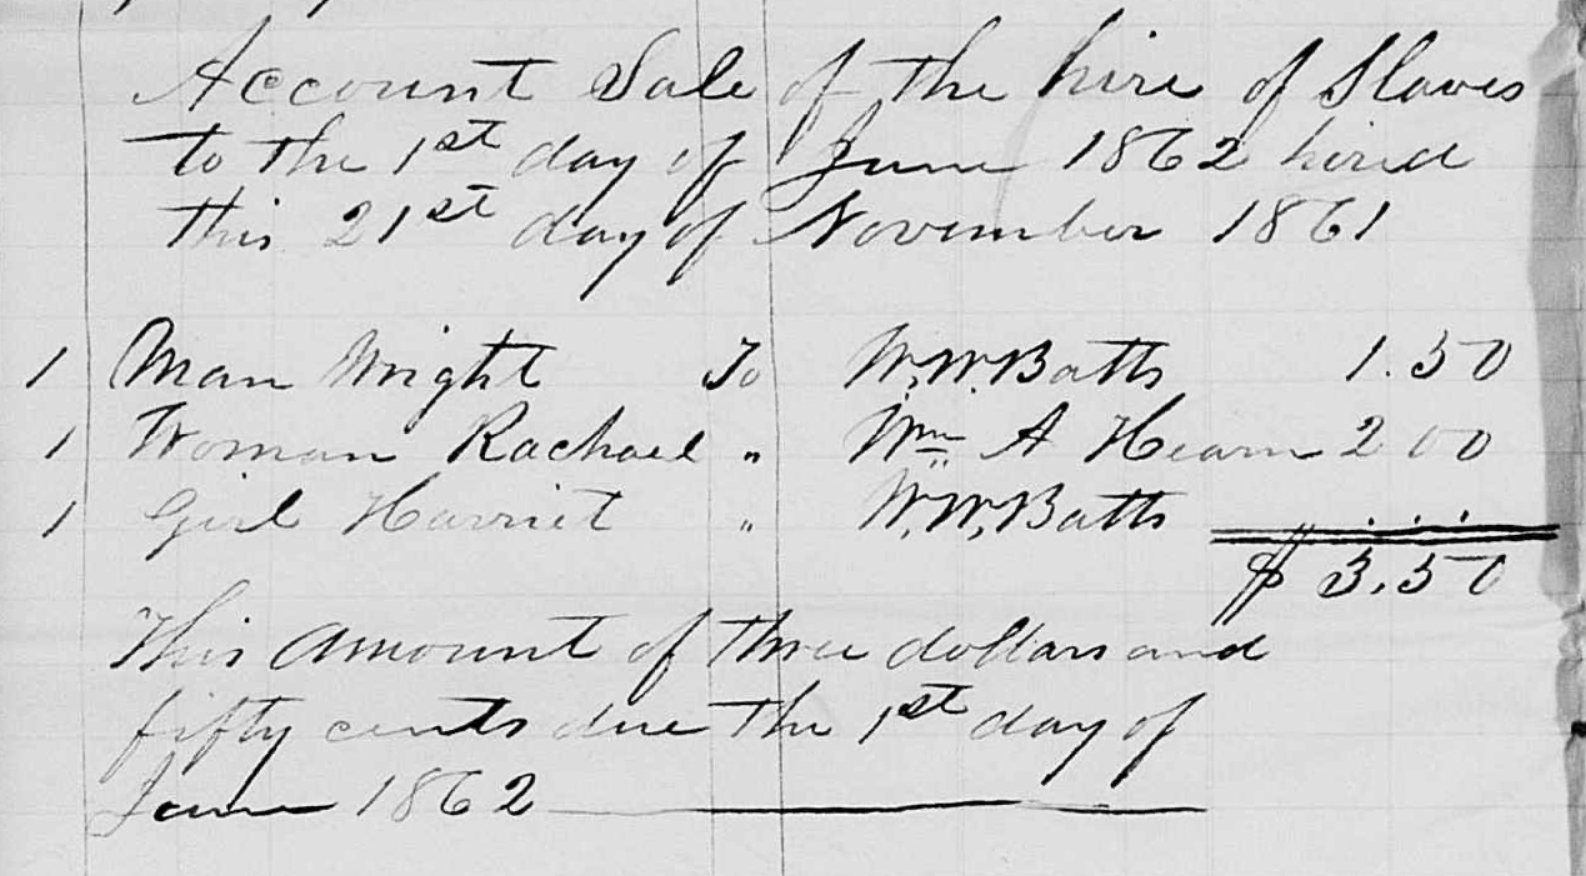 Account Sale of the hire of Slaves
to the 1st day of June 1862 hired
this 21st day of November 1861
1 Man Wright To W. W. Batts 1.50
1 Woman Rachael " Wm A Hearn 2 00
1 Girl Harriet " W. W. Batts . . .
$ 3.50
This amount of three dollars and
fifty cents due the 1st day of
June 1862